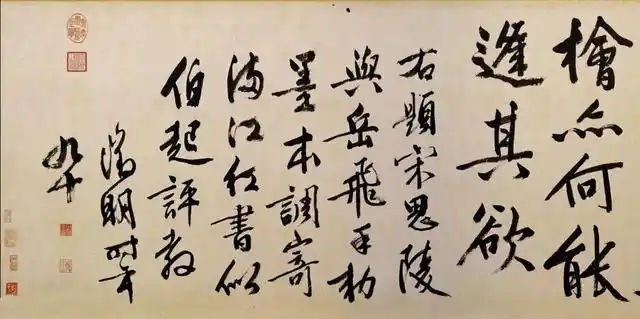 檜亦何能
逢其欲
右題宋思陵
與岳飛手勅
墨本調寄
滿江紅書似
伯起評教
徵明時年
九十